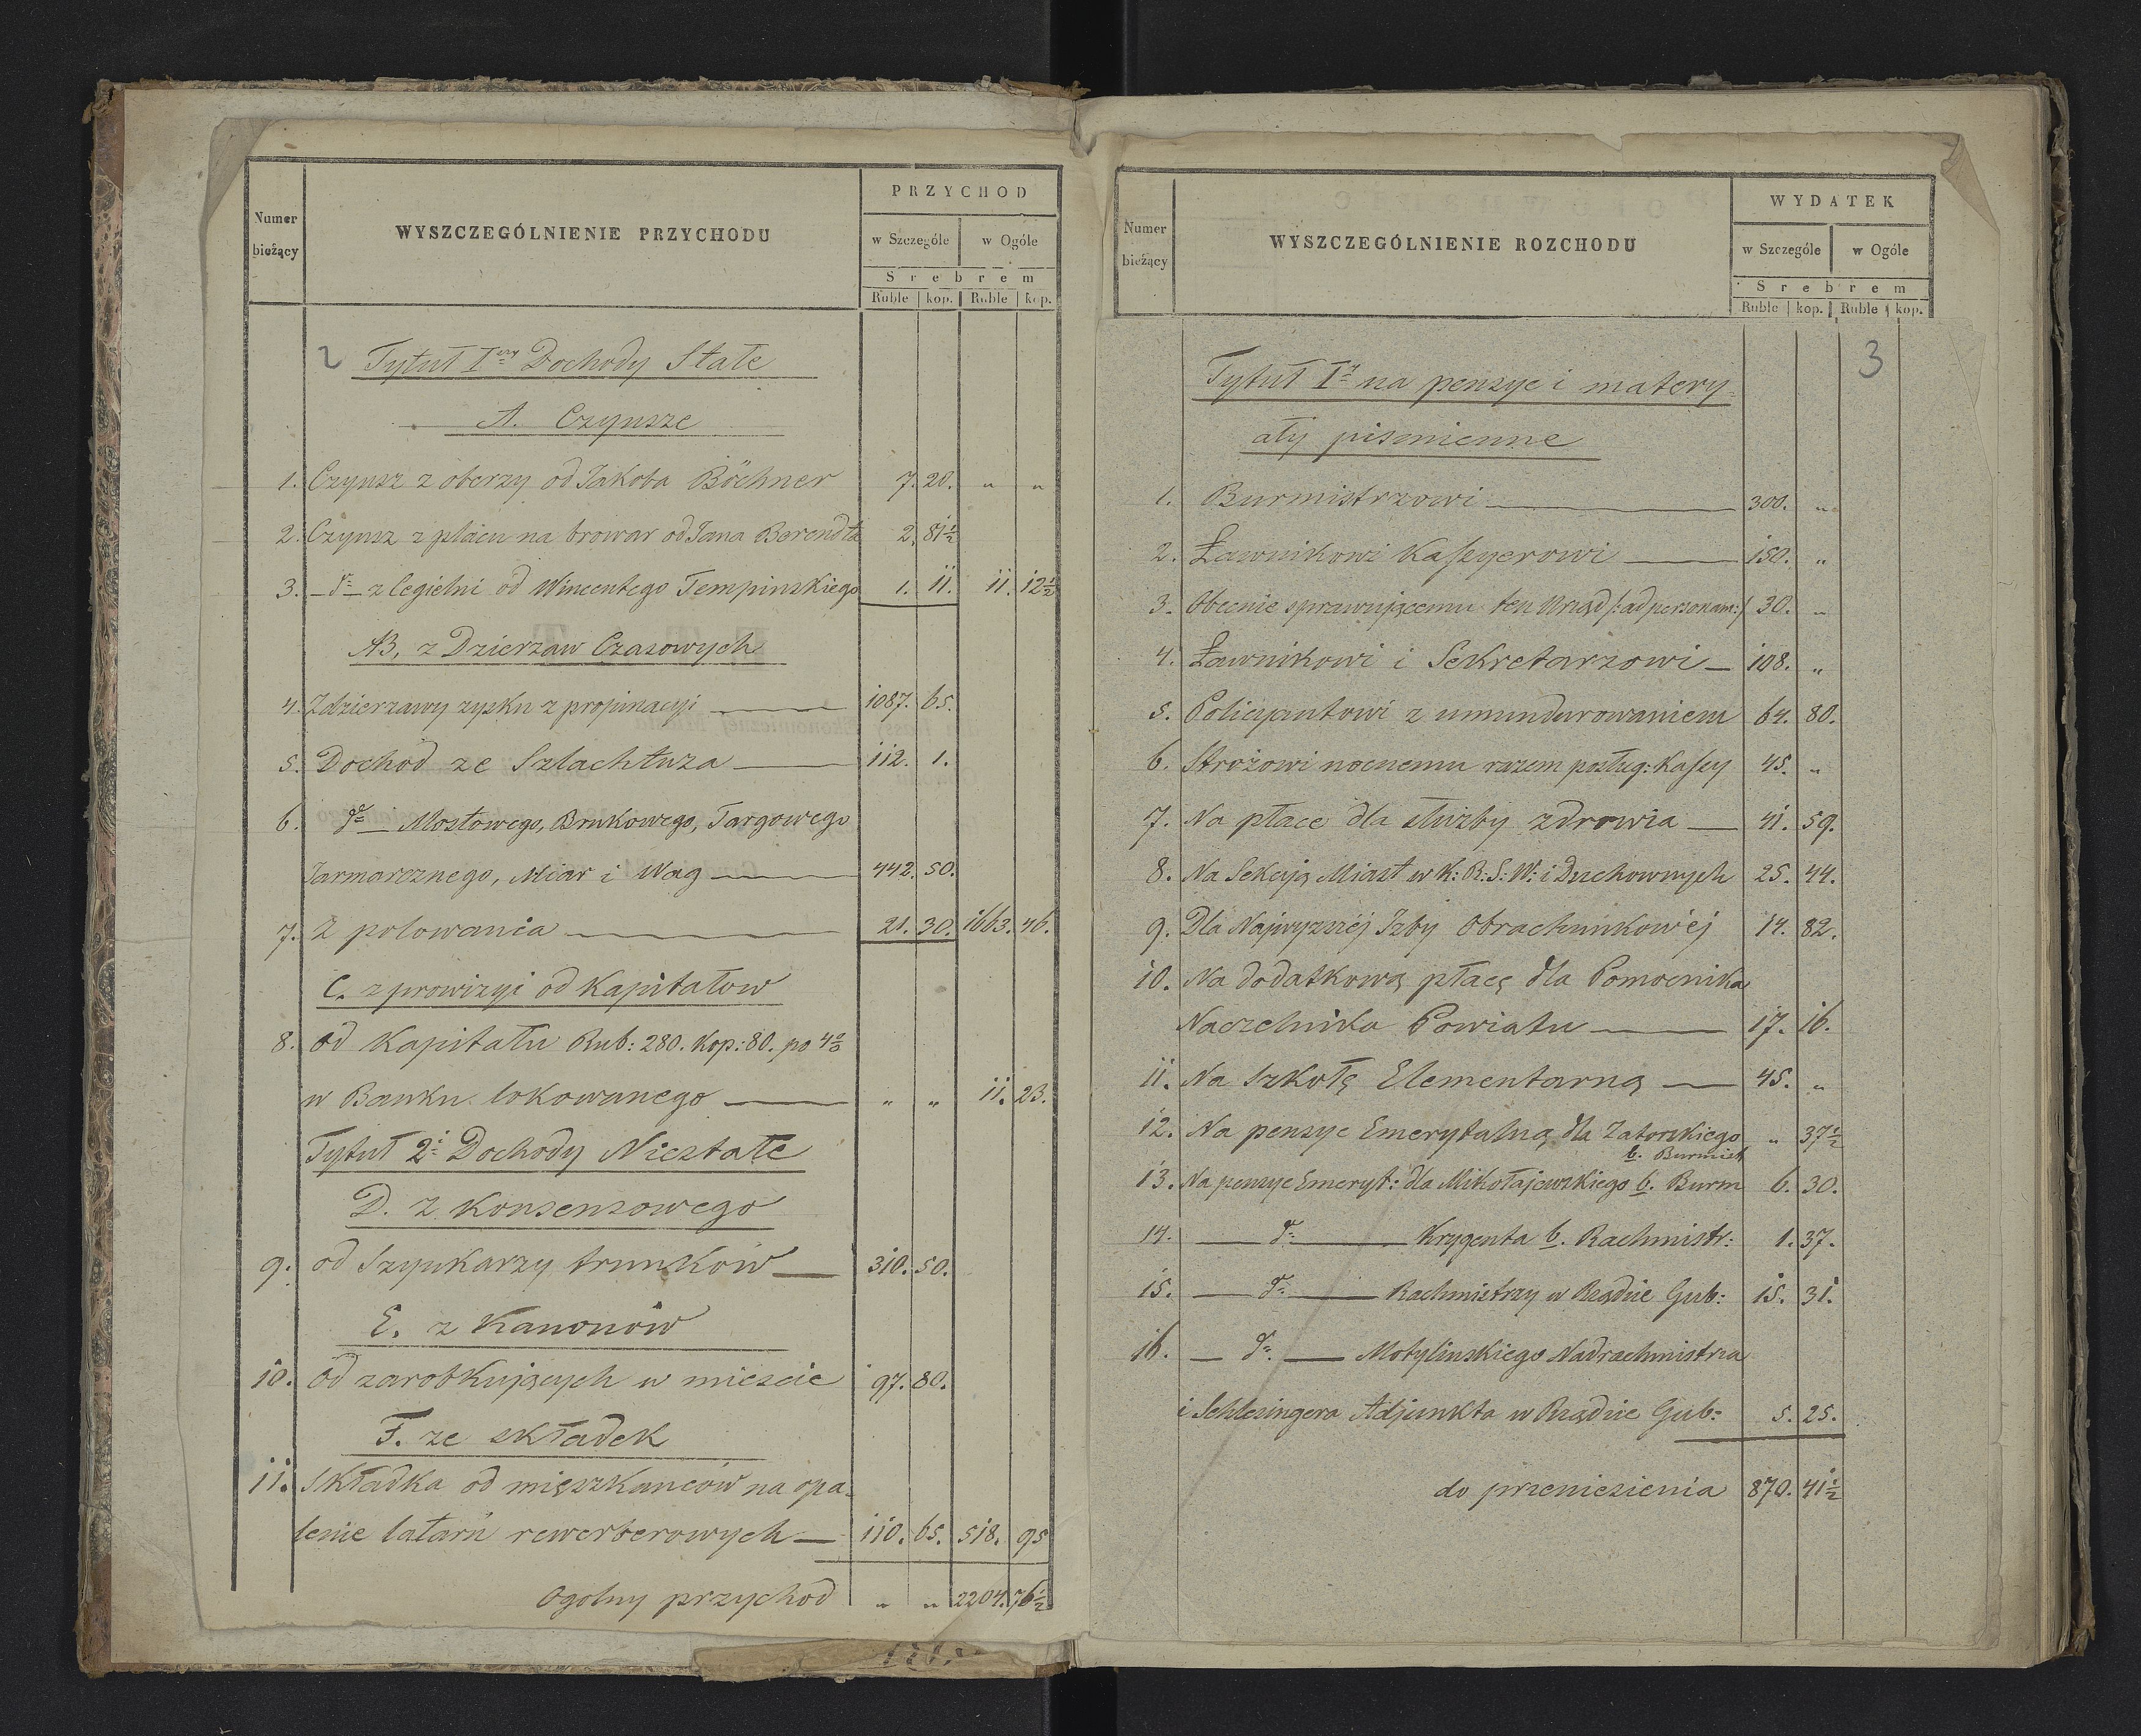 Numer
bieżący
WYSZCZEGÓLNIENIE PRZYCHODU
PRZYCHOD
w Szczególe w Ogóle
Srebrem
Ruble kop. Ruble kop.
2 Tytuł Iszy Dochody Stałe
A. Czynsze
1. Czynsz z oberzy od Jakoba Böchner 7. 20. " "
2. Czynsz z placu na browar od Jana Berendta 2. 81½
3. — d° — z Cegielni od Wincentego Tempinskiego 1. 11. 11. 12½
B, z Dzierzaw Czasowych
4. Zdzierzawy zysku z propinacyi — 1087. 65.
5. Dochód ze Szlachtuza — 112. 1.
6. d° — Mostowego, Brukowego, Targowego
Jarmarcznego, Miar i Wag — 442. 50.
7. Z polowania — 21. 30. 1663. 46.
C. z prowizyi od Kapitałow
8. od Kapitału Rub: 280. Kop: 80. po 4%
w Banku lokowanego — " " 11. 23.
Tytuł 2i Dochody Niestałe
D. z Konsensowego
9. od Szynkarzy trunków — 310. 50.
E. z Kanonów
10. od zarobkujących w miescie 97. 80.
F. ze składek
11. Składka od mięszkanców na opa-
lenie latarń rewerberowych — 110. 65. 518. 95
Ogolny przychód " " 2204. 76½
Numer
bieżący
WYSZCZEGÓLNIENIE ROZCHODU
WYDATEK
w Szczególe w Ogóle
Srebrem
Ruble kop. Ruble kop.
3
Tytuł Iy na pensye i matery-
ały pismienne
1. Burmistrzowi — 300. "
2. Ławnikowi Kassyerowi — 150. "
3. Obecnie sprawującemu ten Urząd /: ad personam :/ 30. "
4. Ławnikowi i Sekretarzowi — 108. "
5. Policyantowi z umundurowaniem 64. 80.
6. Strożowi nocnemu razem posług: Kassy 45. "
7. Na płace dla służby zdrowia — 41. 59.
8. Na Sekcją Miast w K: R: S: W: i Duchownych 25. 44.
9. Dla Najwyzszéj Izby Obrachunkowéj 14. 82.
10. Na dodatkową płacę dla Pomocnika
Naczelnika Powiatu — 17. 16.
11. Na Szkołę Elementarną — 45. "
12. Na pensye Emerytalną dla Zatorskiego " 37½
b. Burmist
13. Na pensye Emeryt: dla Mikołajewskiego b. Burm 6. 30.
14. — d° — Krygenta b. Rachmistr: 1. 37.
15. — d° — Rachmistrzy w Rządzie Gub: 15. 31.
16. — d°. — Motylinskiego Nadrachmistrza
i Schlezingera Adjunkta w Rządzie Gub: 5. 25.
do przeniesienia 870. 41½